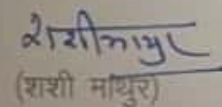 शशीमाथुर
(शशी माथुर)